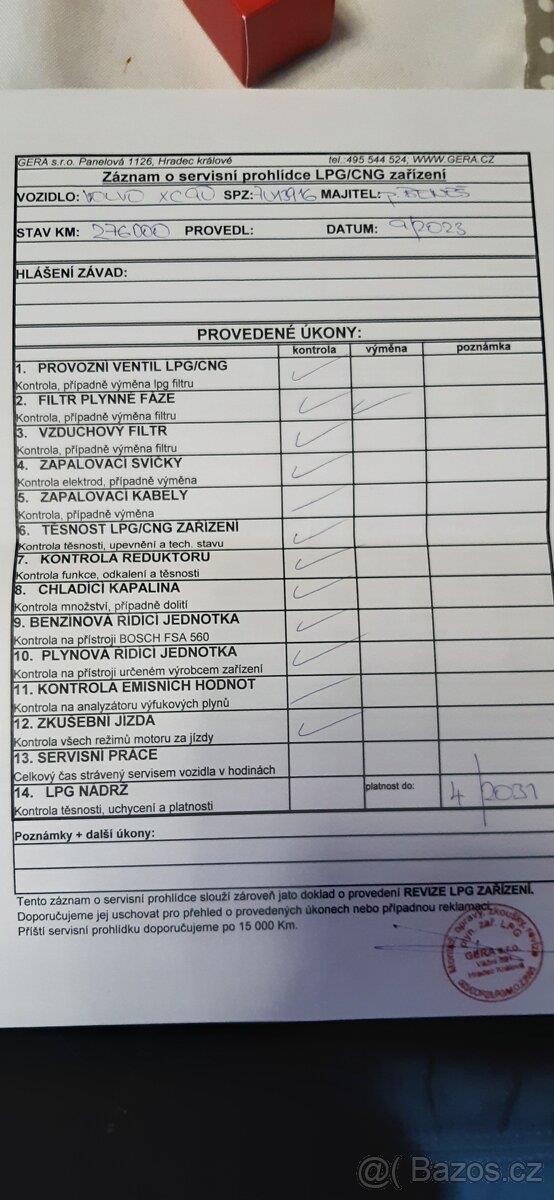 GERA s.r.o. Panelová 1126, Hradec králové tel.:495 544 524; WWW.GERA.CZ
Záznam o servisní prohlídce LPG/CNG zařízení
VOZIDLO: VOLVO XC90 SPZ: MAJITEL: p. BENEŠ
STAV KM: 276000 PROVEDL: DATUM: 9/2023
HLÁŠENÍ ZÁVAD:
PROVEDENÉ ÚKONY:
kontrola výměna poznámka
1. PROVOZNÍ VENTIL LPG/CNG
Kontrola, případně výměna lpg filtru
2. FILTR PLYNNÉ FÁZE
Kontrola, případně výměna filtru
3. VZDUCHOVÝ FILTR
Kontrola, případně výměna filtru
4. ZAPALOVACÍ SVÍČKY
Kontrola elektrod, případně výměna
5. ZAPALOVACÍ KABELY
Kontrola, případně výměna
6. TĚSNOST LPG/CNG ZAŘÍZENÍ
Kontrola těsnosti, upevnění a tech. stavu
7. KONTROLA REDUKTORU
Kontrola funkce, odkalení a těsnosti
8. CHLADÍCÍ KAPALINA
Kontrola množství, případně dolití
9. BENZÍNOVÁ ŘÍDÍCÍ JEDNOTKA
Kontrola na přístroji BOSCH FSA 560
10. PLYNOVÁ ŘÍDÍCÍ JEDNOTKA
Kontrola na přístroji určeném výrobcem zařízení
11. KONTROLA EMISNÍCH HODNOT
Kontrola na analyzátoru výfukových plynů
12. ZKUŠEBNÍ JÍZDA
Kontrola všech režimů motoru za jízdy
13. SERVISNÍ PRÁCE
Celkový čas strávený servisem vozidla v hodinách
14. LPG NÁDRŽ platnost do: 4/2031
Kontrola těsnosti, uchycení a platnosti
Poznámky + další úkony:
Tento záznam o servisní prohlídce slouží zároveň jato doklad o provedení REVIZE LPG ZAŘÍZENÍ.
Doporučujeme jej uschovat pro přehled o provedených úkonech nebo případnou reklamaci.
Příští servisní prohlídku doporučujeme po 15 000 Km.
Montáž, opravy, zkoušky, revize
plyn. zař. LPG
GERA s.r.o.
Hradec Králové
@( Bazos.cz